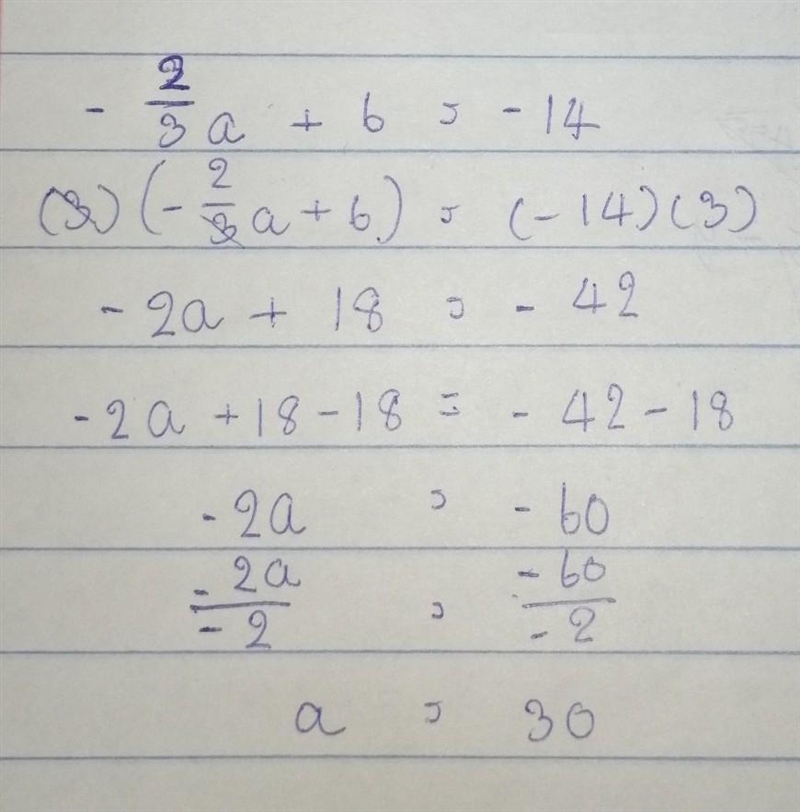 - 2/3 a + 6 = -14
(3) (- 2/3 a + 6) = (-14) (3)
- 2a + 18 = - 42
- 2a + 18 - 18 = - 42 - 18
- 2a = - 60
- 2a / - 2 = - 60 / - 2
a = 30